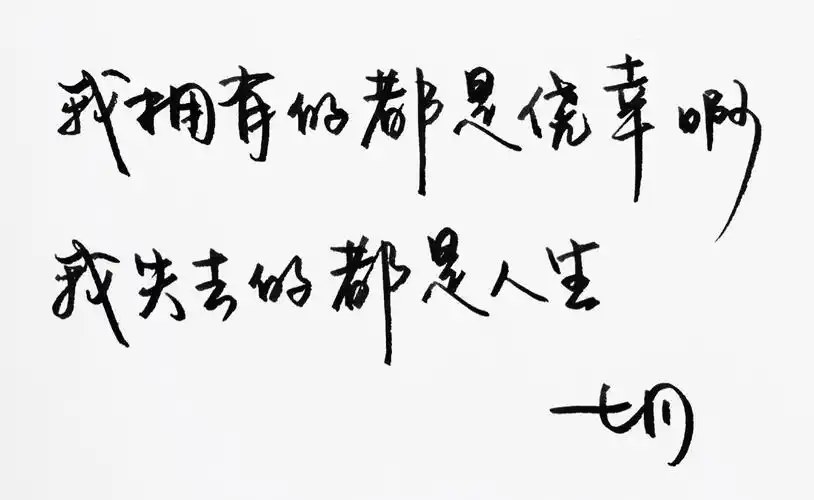 我拥有的都是侥幸啊
我失去的都是人生
七月